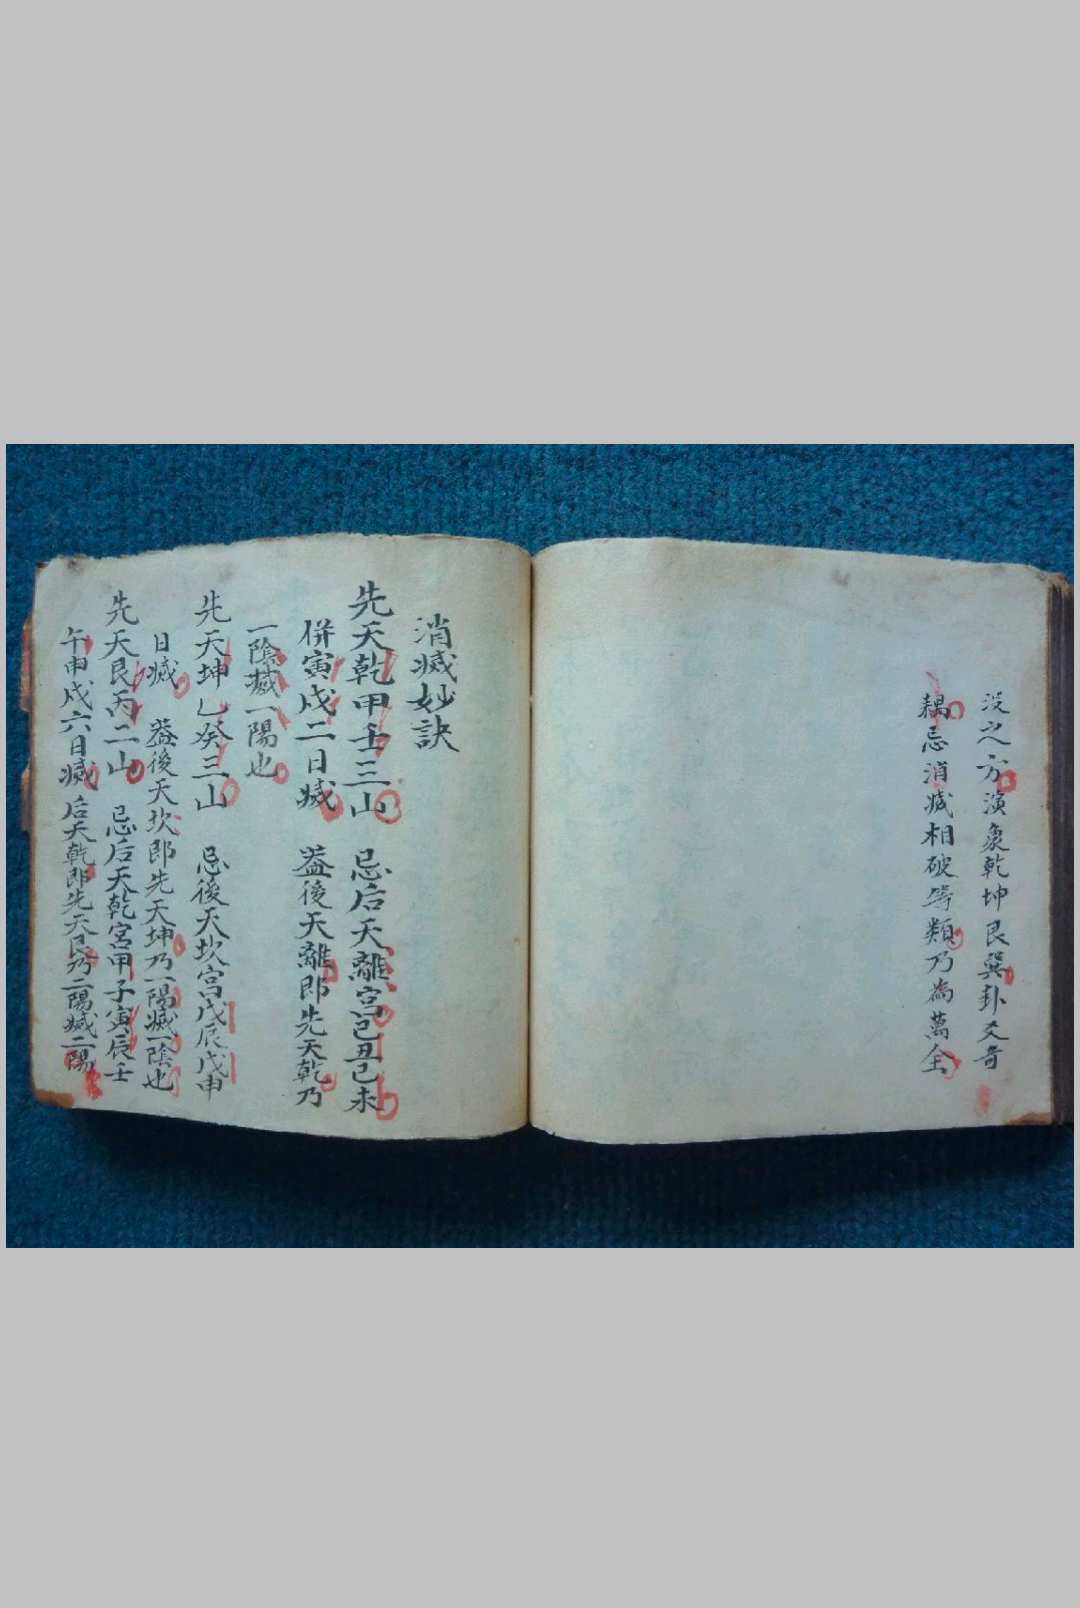 没之方演彖乾坤艮巽卦爻奇
耦忌消滅相破等類乃為萬全
消滅妙訣
先天乾甲壬三山 忌后天離宮己丑己未
併寅戌二日滅 蓋後天離即先天乾乃
一陰滅一陽也
先天坤乙癸三山 忌後天坎宮戊辰戊申
日滅 蓋後天坎即先天坤乃一陽滅一陰也
先天艮丙二山 忌后天乾宮甲子寅辰壬
午申戌六日滅后天乾即先天艮乃二陽滅二陽